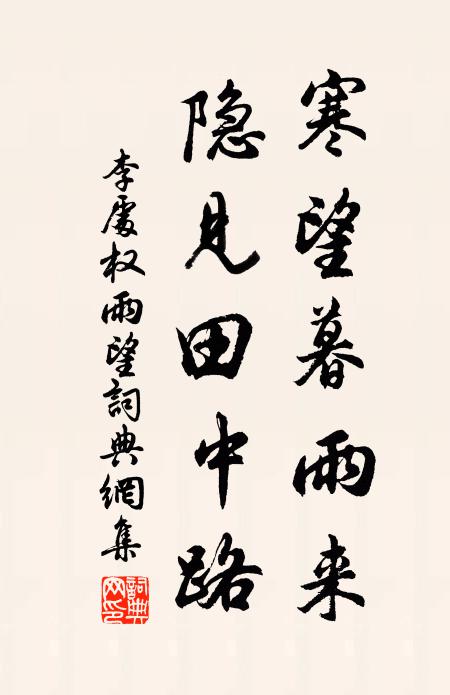 寒望暮雨来
隐见田中路
李處权雨望詞典網集
詞典网印